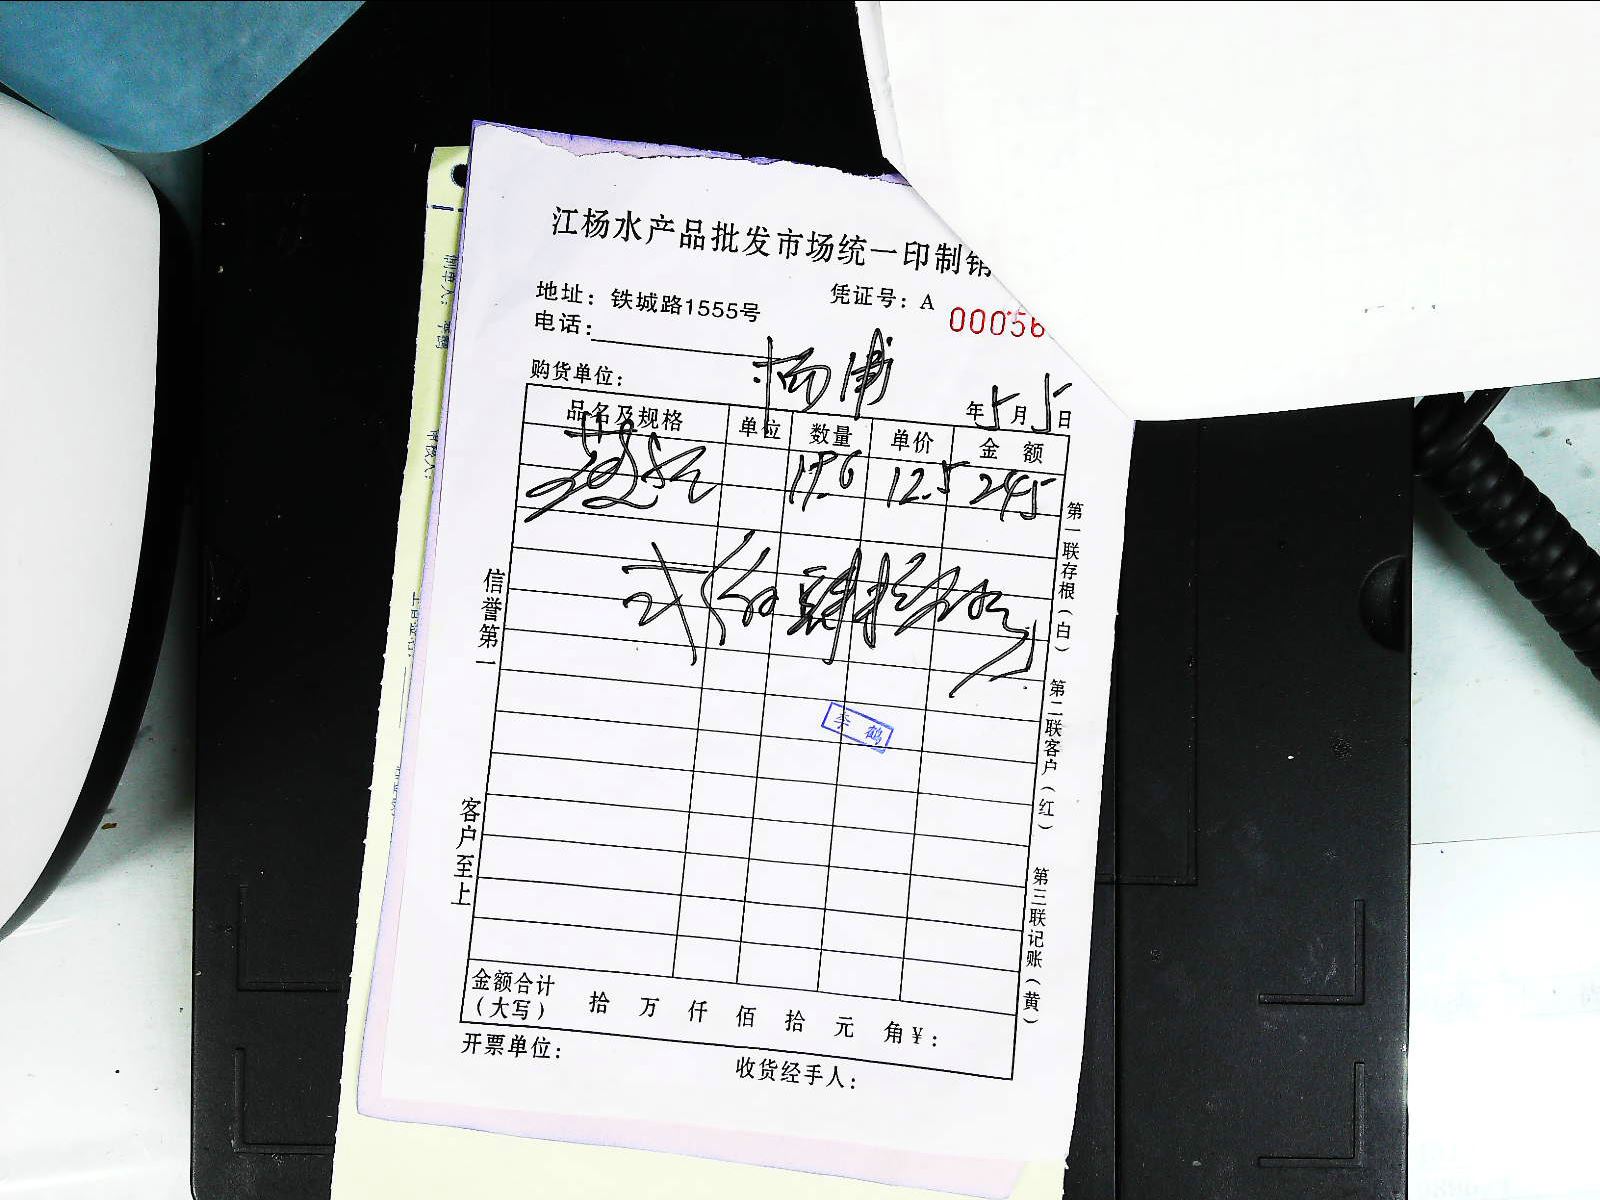 江杨水产品批发市场统一印制销
地址：铁城路1555号
凭证号：A 00056
电话：
购货单位：
杨浦
年5月5日
品名及规格 单位 数量 单价 金额
19.6 12.5 245
贰佰肆拾伍元
李鹤
信誉第一
客户至上
第一联存根（白）
第二联客户（红）
第三联记账（黄）
金额合计
（大写）
拾 万 仟 佰 拾 元 角 ¥：
开票单位：
收货经手人：